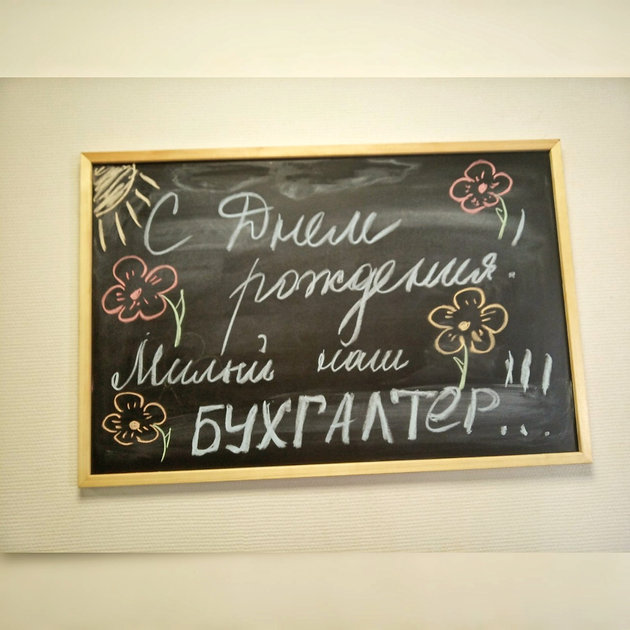 С Днем
рождения.
Милый наш
БУХГАЛТЕР...!!!